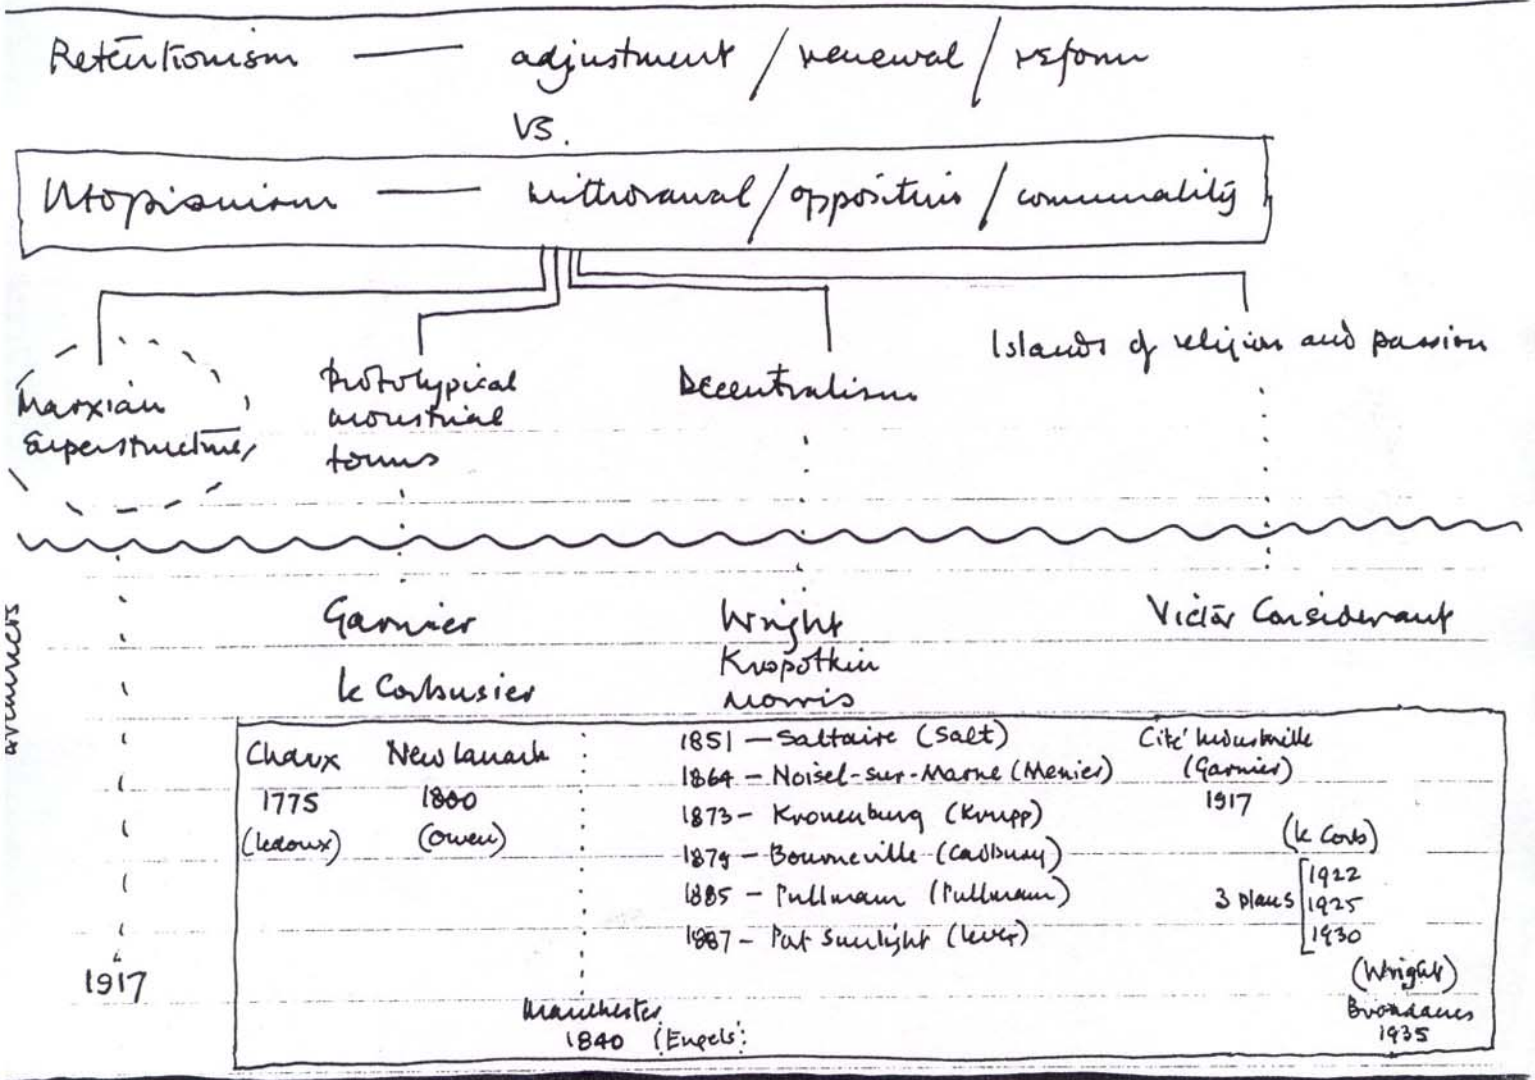 Retentionism — adjustment / renewal / reform
VS.
Utopianism — withdrawal / opposition / communality
Islands of religion and passion
Marxian
Superstructure,
Prototypical
industrial
towns
Decentralism
Garnier
le Corbusier
Wright
Kropotkin
Morris
Victor Considerant
Chaux
1775
(ledoux)
New Lanark
1800
(Owen)
1851 — Saltaire (Salt)
1864 — Noisel-sur-Marne (Menier)
1873 — Kronenburg (Krupp)
1879 — Bourneville (Cadbury)
1885 — Pullman (Pullman)
1887 — Port Sunlight (Lever)
Cité Industrielle
(Garnier)
1917
(le Corb)
3 plans
1922
1925
1930
(Wright)
Broadacres
1935
Manchester
1840 (Engels)
1917